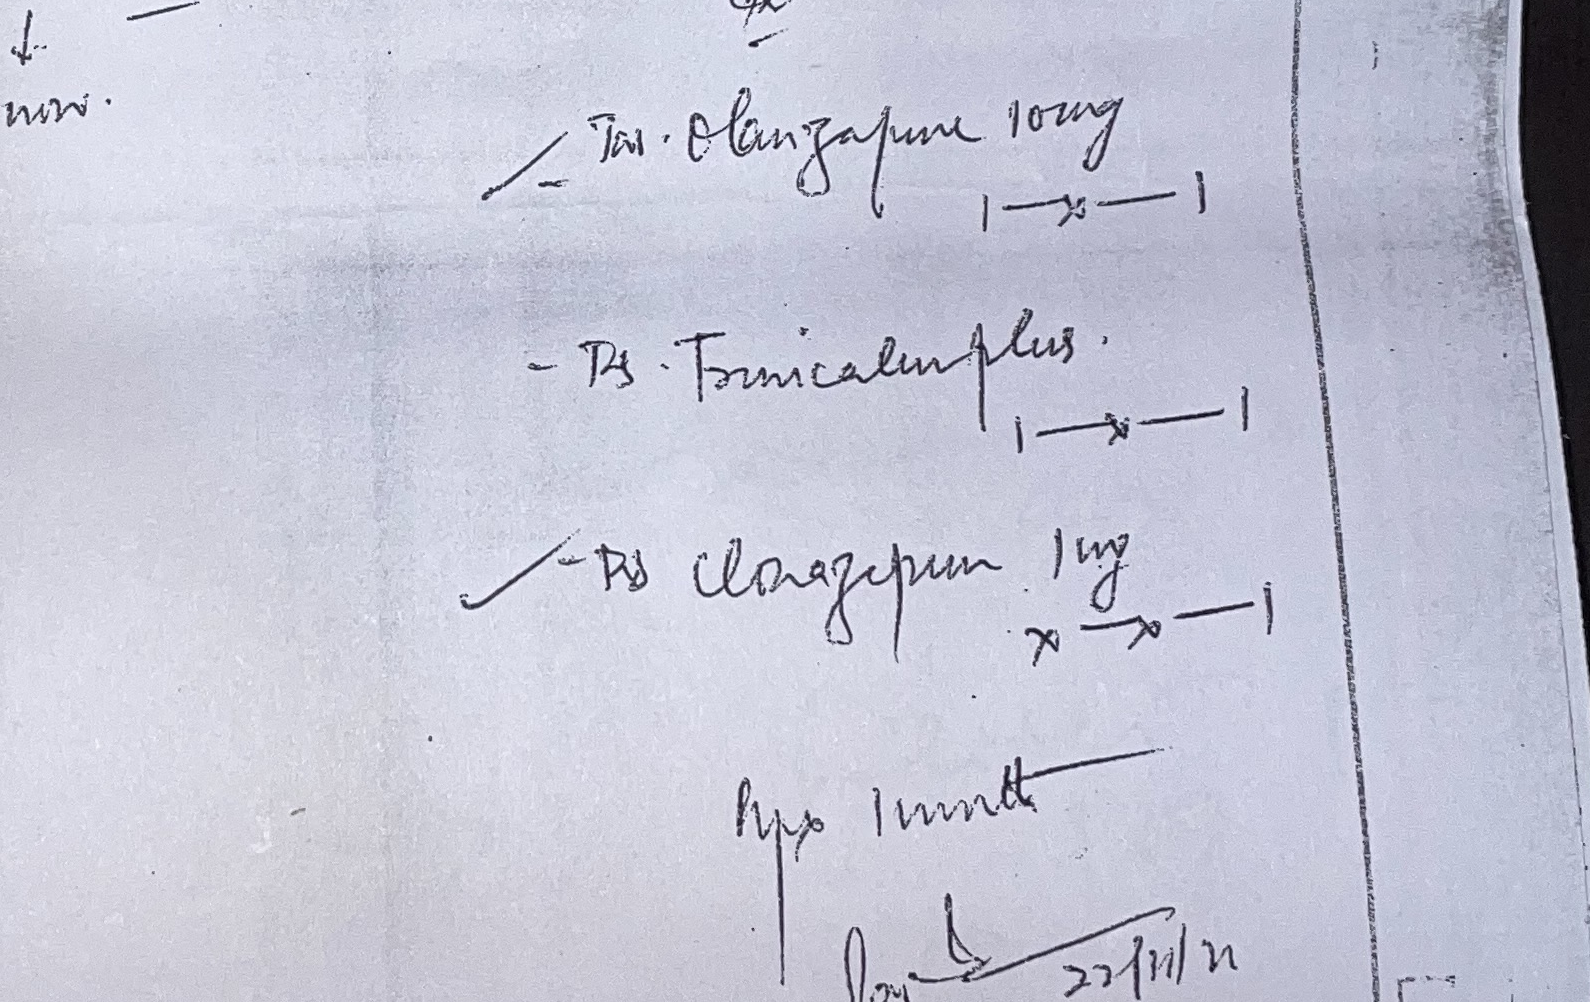 now.
Rx
- Tab. Olanzapine 10mg
1 — x — 1
- Tab. Trinicalm plus.
1 — x — 1
- Tab Clonazepam 1mg
x — x — 1
1 month